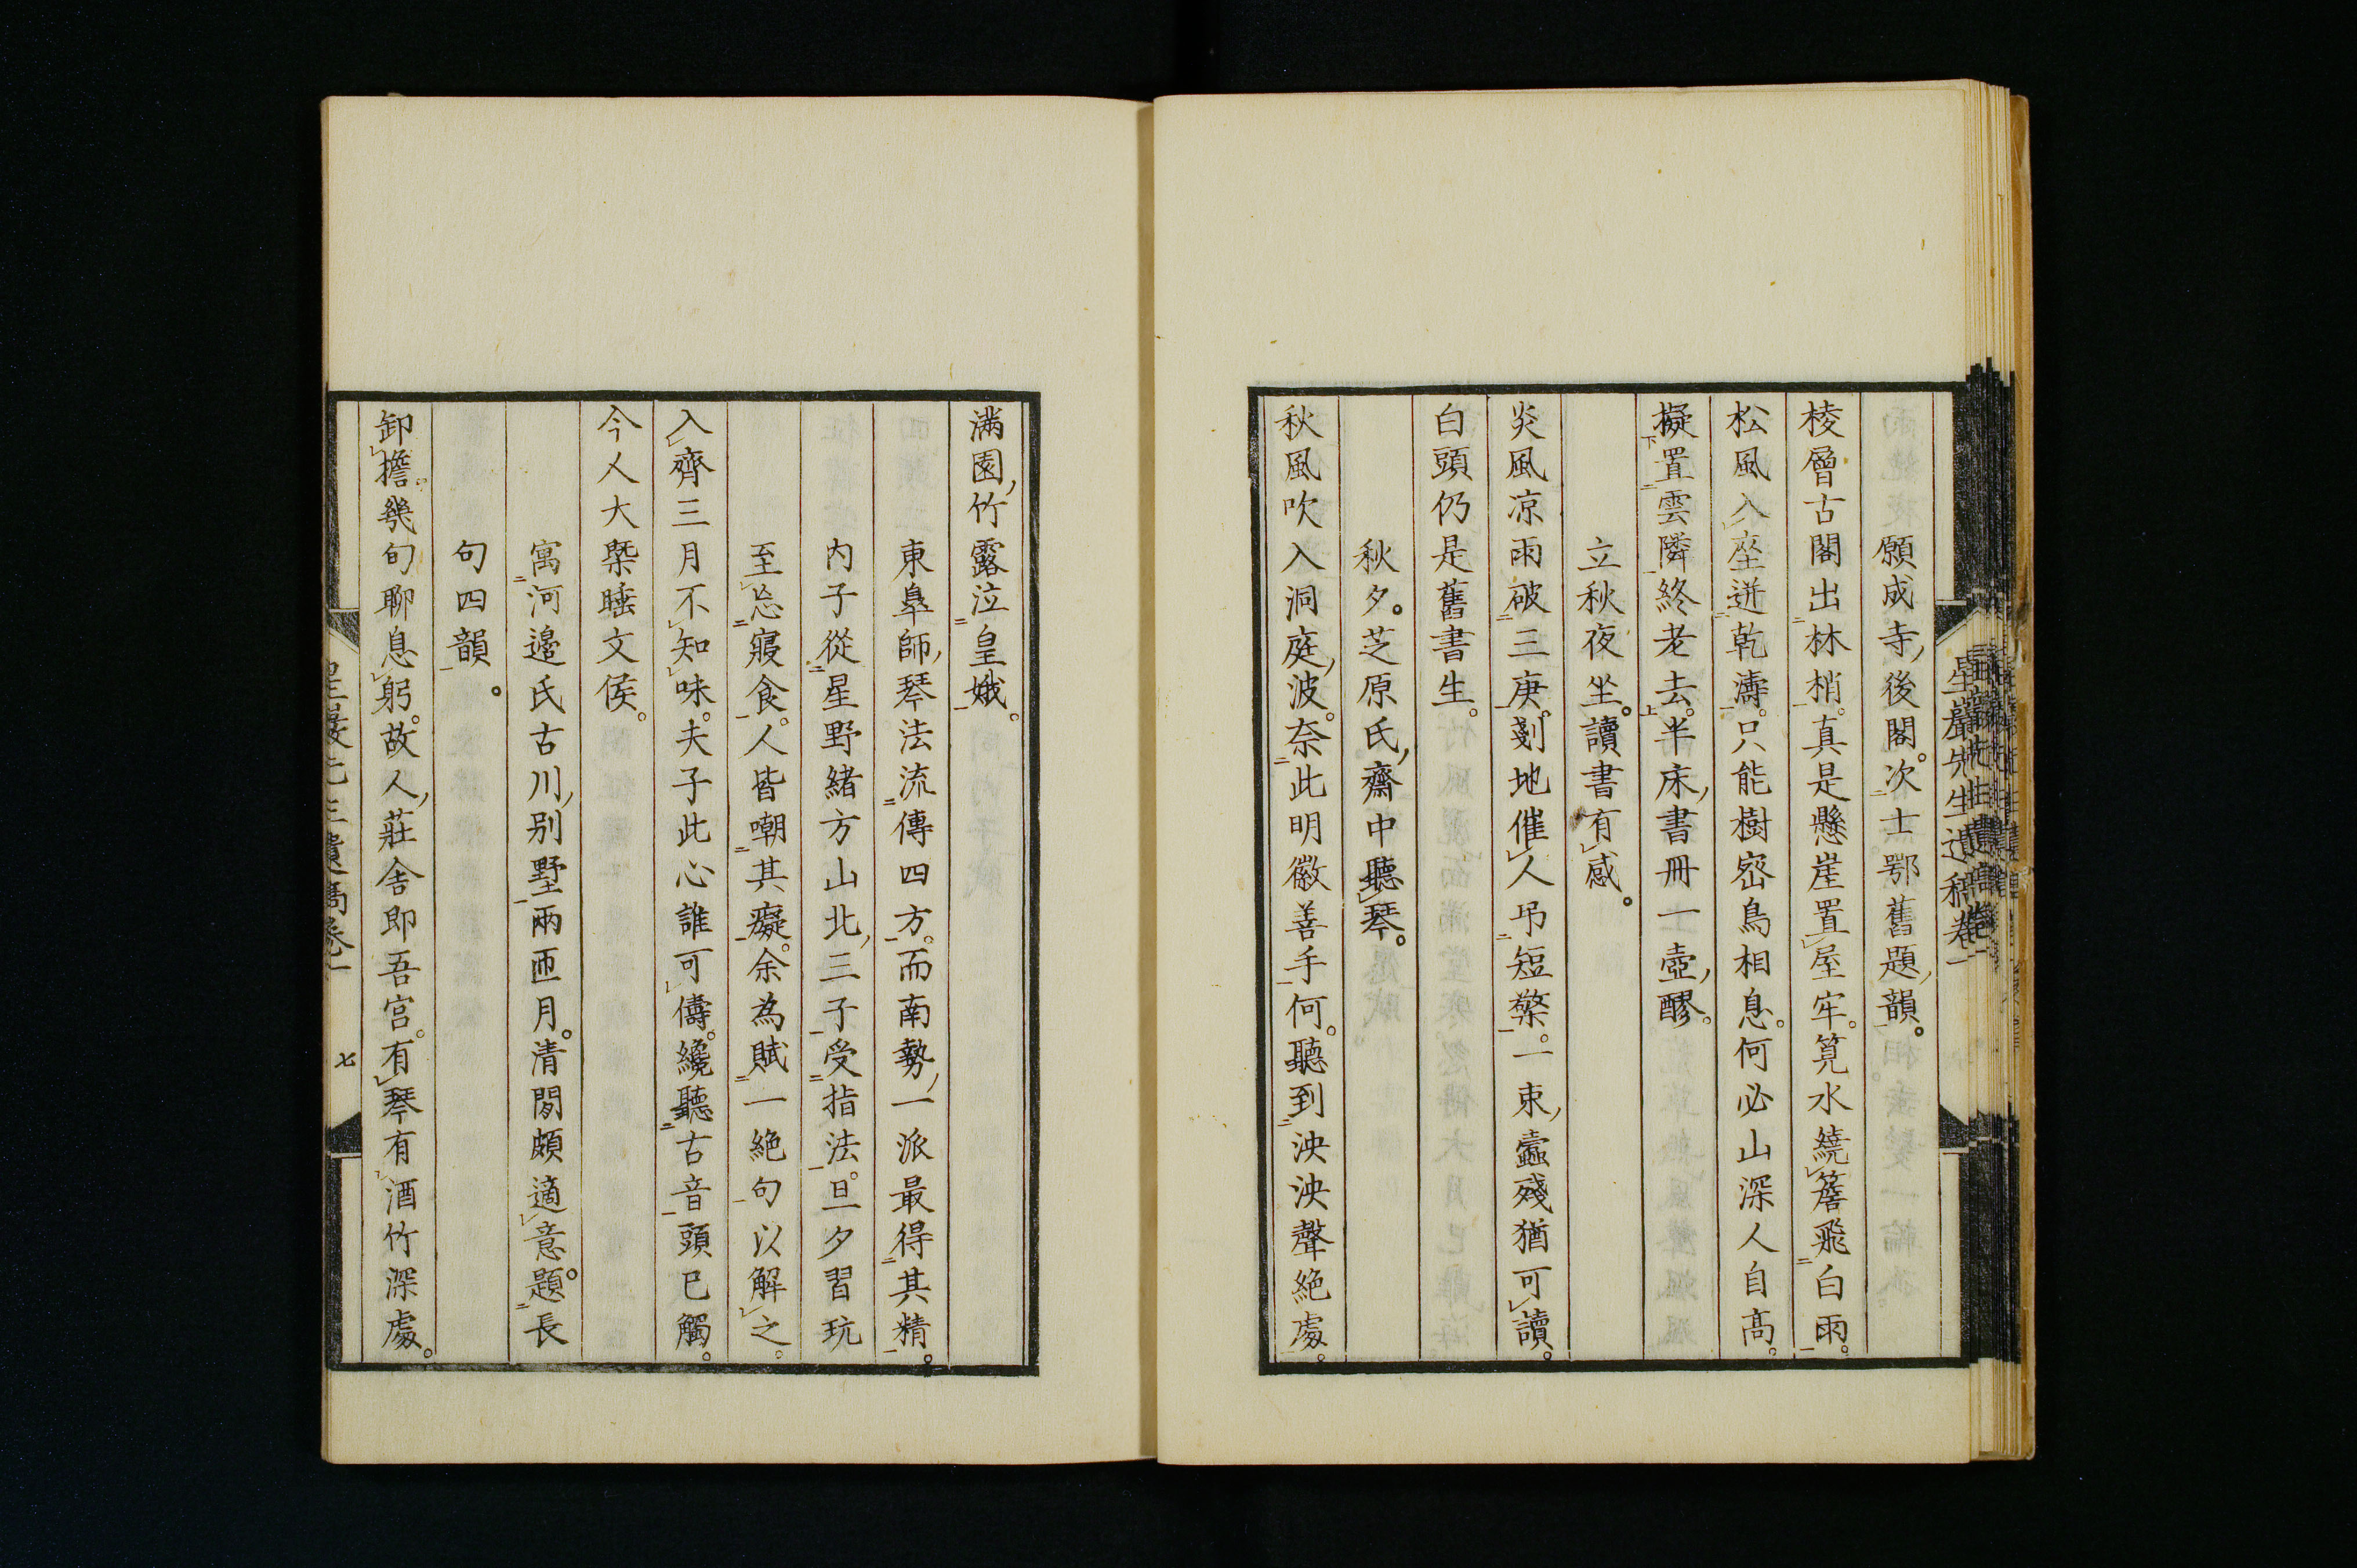 願成寺後閣。次士鄂舊題韻。
棱層古閣出林梢。真是懸崖置屋牢。筧水繞簷飛白雨。
松風入座迸乾濤。只能樹密鳥相息。何必山深人自高。
擬置雲隣終老去。半床書冊一壺醪。
立秋夜坐。讀書有感。
炎風凉雨破三庚。剗地催人弔短檠。一束蠹殘猶可讀。
白頭仍是舊書生。
秋夕。芝原氏齋中聽琴。
秋風吹入洞庭波。奈此明徽善手何。聽到泱泱聲絕處。
滿園竹露泣皇娥。
東皐師琴法流傳四方。而南勢一派最得其精。
内子從星野緒方山北三子受指法。旦夕習玩
至忘寢食。人皆嘲其癡。余為賦一絕句以解之。
入齊三月不知味。夫子此心誰可儔。纔聽古音頭已觸。
今人大槩睡文侯。
寓河邉氏古川別墅兩匝月。清閒頗適意。題長
句四韻。
卸擔幾旬聊息躬。故人莊舍即吾宮。有琴有酒竹深處。
星巖先生遺稿卷一
七
星巖先生遺稿卷一